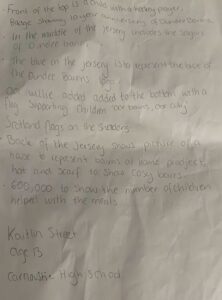 Front of the top is a child with a hockey prayer.
Badge showing 10 year anniversary of Dundee Bairns
- In the middle of the jersey includes the slogan
of Dundee bairns.
- the blue in the jersey is to represent the blue of
the Dundee Bairns logo.
- Oor wullie added to the bottom with a
flag supporting children 'our bairns, our city'
Scotland flags on the shoulders.
- Back of the jersey shows picture of a
house to represent bairns at home product,
hat and scarf to show cosy bairns.
- 600,000 to show the number of children
helped with the meals.
Kaitlin Street
age 13
Carnoustie High School